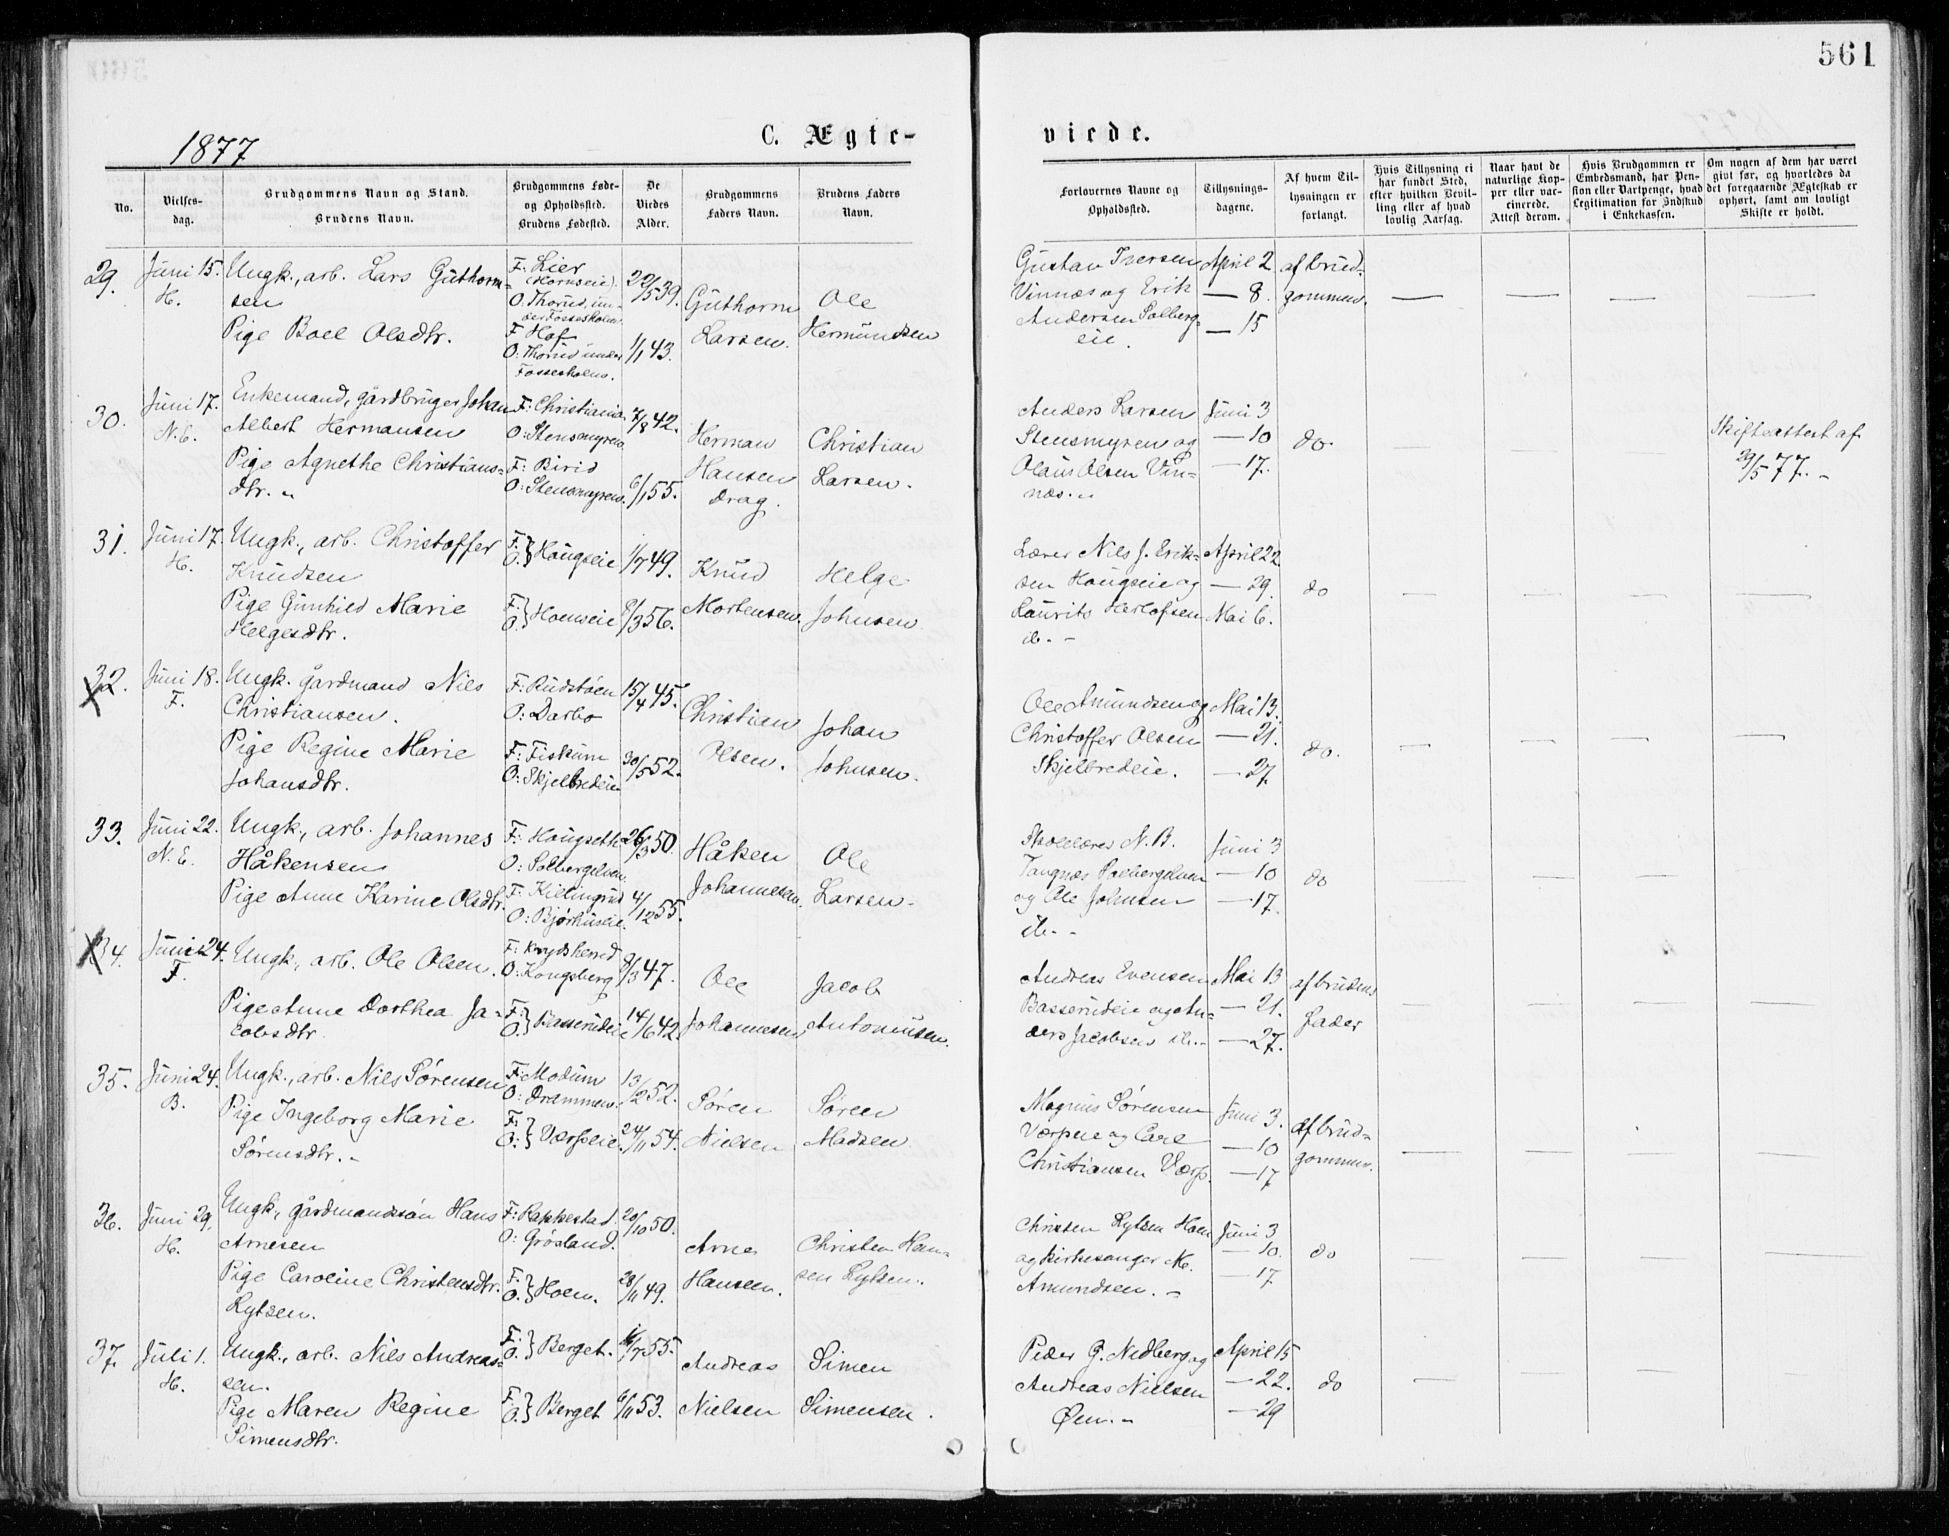 561
1877
C. Ægte-
viede.
No.
Vielses-
dag.
Brudgommens Navn og Stand.
Brudens Navn.
Brudgommens Føde-
og Opholdssted.
Brudens Fødested.
De
Viedes
Alder.
Brudgommens
Faders Navn.
Brudens Faders
Navn.
Forlovernes Navne og
Opholdssted.
Tillysnings-
dagene.
Af hvem Til-
lysningen er
forlangt.
Hvis Tillysning ei
har fundet Sted,
efter hvilken Bevil-
ling eller af hvad
lovlig Aarsag.
Naar havt de
naturlige Kop-
per eller vac-
cinerede.
Attest derom.
Hvis Brudgommen er
Embedsmand, har Pen-
sion eller Vartpenge, hvad
Legitimation for Indskud
i Enkekassen.
Om nogen af dem har været
givt før, og hvorledes da
det foregaaende Ægteskab er
ophørt, samt om lovligt
Skifte er holdt.
29.
Juni 15.
H.
Ungk., arb. Lars Guthorm-
sen
Pige Boel Olsdtr.
F: Lier
(Hornseie)
O. Thorud un-
der Fossesholm
F. Hof
O: Thorud under
Fossesholm.
22/5 39.
1/1 43.
Guthorm
Larsen.
Ole
Hermundsen
Gustav Iversen
Vinnæs og Erik
Andersen Solberg-
eie.
April 2
— 8.
— 15
af brud-
gommen.
30.
Juni 17.
N.E.
Enkemand, gårdbruger Johan
Albert Hermansen
Pige Agnethe Christians-
dtr. "
F: Christiania
O: Stensmyren
F: Birid
O: Stensmyren.
7/8 42.
6/1 55.
Herman
Hansen
Drag.
Christian
Larsen.
Anders Larsen
Stensmyren og
Olaus Olsen Vin-
næs. "
Juni 3
— 10
— 17.
do.
Skifteattest af
29/5 77. -
31.
Juni 17.
H.
Ungk., arb. Christoffer
Knudsen
Pige Gunhild Marie
Helgesdtr.
F:
O: } Hougseie
F:
O: } Hoenseie
1/7 49.
8/3 56.
Knud
Mortensen.
Helge
Johnsen.
Lærer Nils J. Erik-
sen Hougseie og
Laurits Herlofsen
ib. -
April 22
— 29.
Mai 6.
do
32.
Juni 18.
F.
Ungk. gårdmand Nils
Christiansen.
Pige Regine Marie
Johansdtr.
F: Rudstøen
O: Darbo
F: Fiskum
O: Skjelbredeie
15/4 45.
30/5 52.
Christian
Olsen.
Johan
Johnsen.
Ole Amundsen og
Christoffer Olsen
Skjelbredeie.
Mai 13.
— 21.
— 27
do.
33.
Juni 22.
N. E.
Ungk., arb. Johannes
Håkensen
Pige Anne Karine Olsdtr.
F: Hougseth
O: Solbergelven.
F. Killingrud
O: Bjørkuseie.
26/3 50.
4/12 55.
Håken
Johannesen.
Ole
Larsen.
Skolelærer N. B.
Tangnæs Solbergelven
og Ole Johnsen
ib. -
Juni 3
— 10
— 17.
do
34.
Juni 24.
F.
Ungk., arb. Ole Olsen.
Pige Anne Dorthea Ja-
cobsdtr.
F: Krydsherred
O: Kongsberg
F:
O: } Basserudeie
9/3 47.
14/6 42.
Ole
Johannesen
Jacob
Antonius​en.
Andreas Evensen
Basserudeie og An-
ders Jacobsen ib. -
Mai 13
— 21.
— 27.
af brudens
fader
35.
Juni 24.
B.
Ungk., arb. Nils Sørensen
Pige Ingeborg Marie
Sørensdtr. -
F: Modum
O: Drammen.
F:
O: } Værpeie.
13/2 52.
24/11 54.
Søren
Nielsen
Søren
Madsen.
Magnus Sørensen
Værpeie og Carl
Christiansen Værp.
Juni 3.
— 10
— 17
af brud-
gommen.
36.
Juni 29.
H.
Ungk., gårdmandssøn Hans
Arnesen
Pige Caroline Christensdtr.
Rytsen.
F: Rakkestad.
O: Grøsland.
F.
O. } Hoen.
20/10 50.
28/11 49.
Arne
Hansen.
Christen Han-
sen Rytsen.
Christen Rytsen Hoen
og kirkesanger M.
Amundsen. -
Juni 3
— 10.
— 17
do
37.
Juli 1.
H.
Ungk., arb. Nils Andreas-
sen.
Pige Maren Regine
Simensdtr.
F.
O. } Berget.
F.
O. } Berget
/7 55.
6/11 53.
Andreas
Nielsen
Simen
Simensen.
Peder G. Nedberg og
Andreas Nielsen
Øen. -
April 15
— 22.
— 29
do